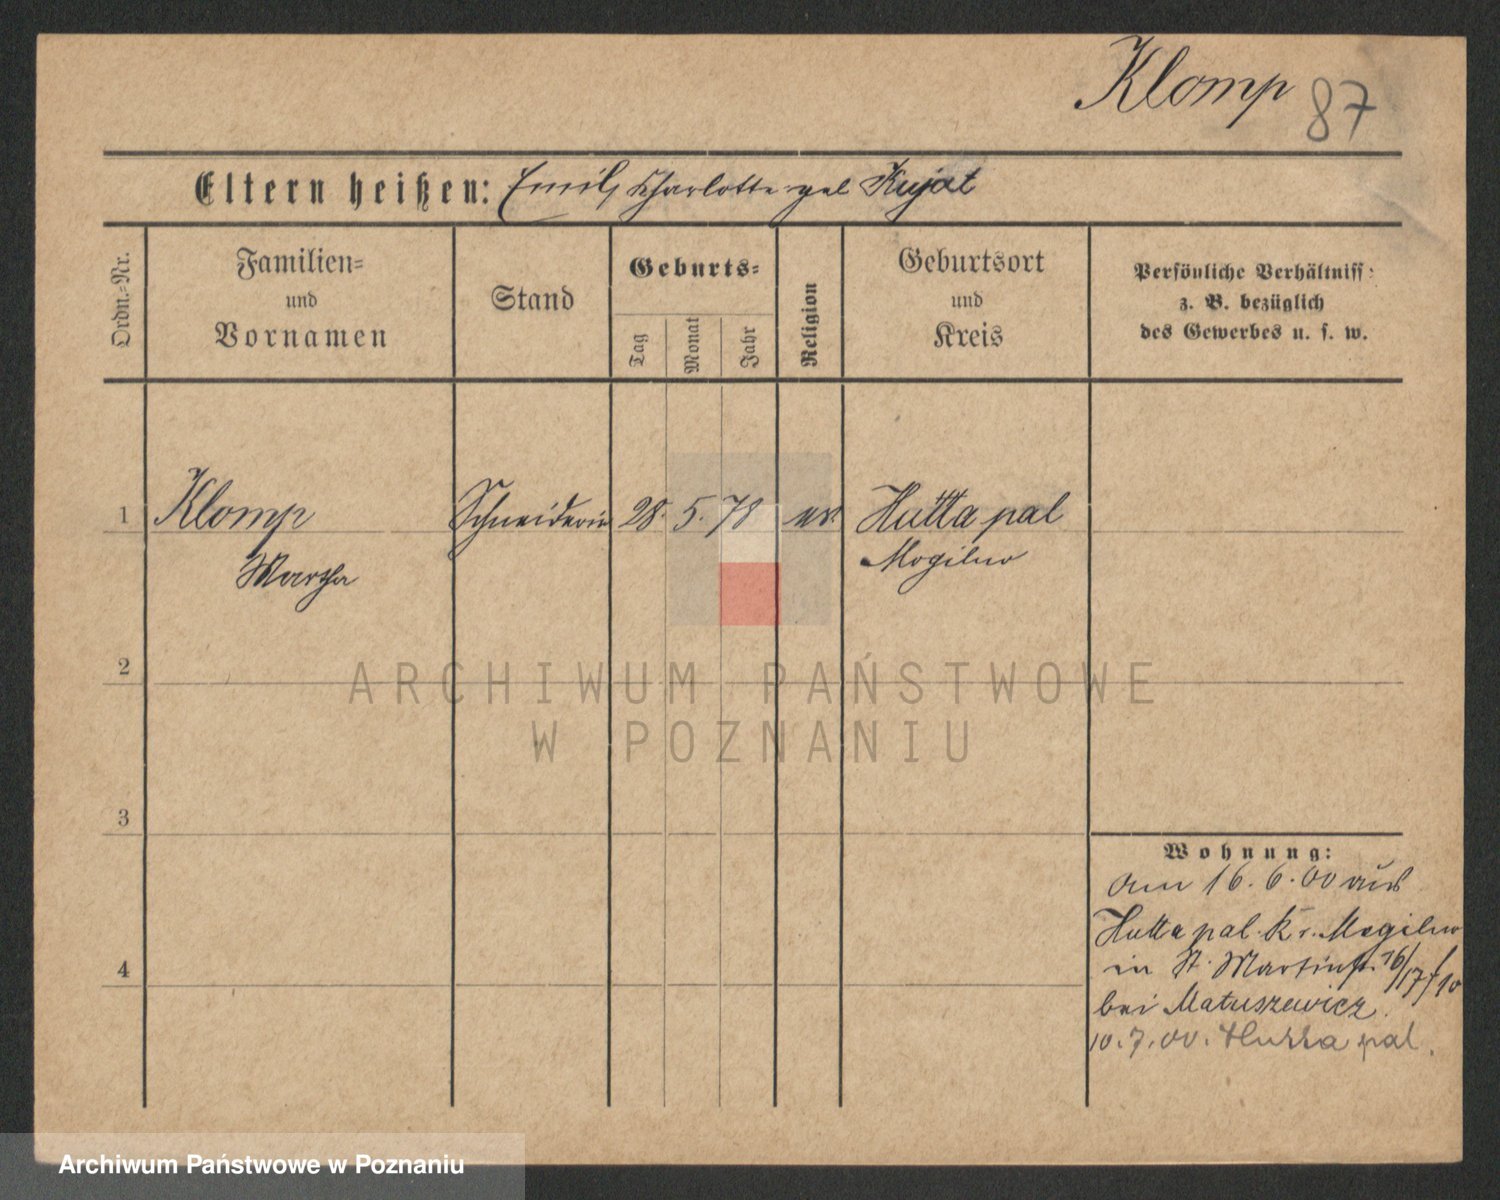 Klomp 87
Eltern heißen: Emil, Charlotte gel Kujat
Ordn.-Nr.
Familien=
und
Vornamen
Stand
Geburts=
Tag
Monat
Jahr
Religion
Geburtsort
und
Kreis
Persönliche Verhältniss:
z. B. bezüglich
des Gewerbes u. s. w.
1 Klomp Schneiderin 28. 5. 78 ev. Hutta pal
Martha Mogilno
2
ARCHIWUM PAŃSTWOWE
W POZNANIU
3
Wohnung:
am 16. 6. 00 aus
Hutta pal. Kr. Mogilno
in St. Martinstr. 16/17
bei Matuszewicz.
4
10. 7. 00. Hutta pal.
Archiwum Państwowe w Poznaniu